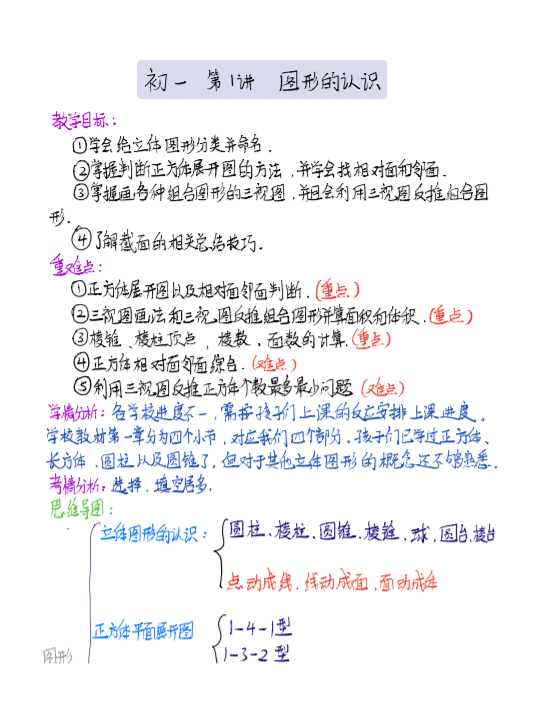 初一 第1讲 图形的认识
教学目标：
①学会给立体图形分类并命名.
②掌握判断正方体展开图的方法，并学会找相对面和邻面.
③掌握画各种组合图形的三视图,并且会利用三视图反推组合图
形.
④了解截面的相关总结技巧.
重难点：
①正方体展开图以及相对面邻面判断.(重点)
②三视图画法和三视图反推组合图形并算面积和体积.(重点)
③棱锥、棱柱顶点，棱数、面数的计算.(重点)
④正方体相对面邻面综合.(难点)
⑤利用三视图反推正方体个数最多最少问题(难点)
学情分析：各学校进度不一,需按孩子们上课的反应安排上课进度。
学校教材第一章分为四个小节,对应我们四个部分。孩子们已学过正方体、
长方体、圆柱以及圆锥了,但对于其他立体图形的概念还不够熟悉.
考情分析：选择.填空居多.
思维导图：
立体图形的认识：
圆柱、棱柱、圆锥、棱锥、球.圆台.棱台
点动成线.线动成面.面动成体
正方体平面展开图
1-4-1型
1-3-2型
图形